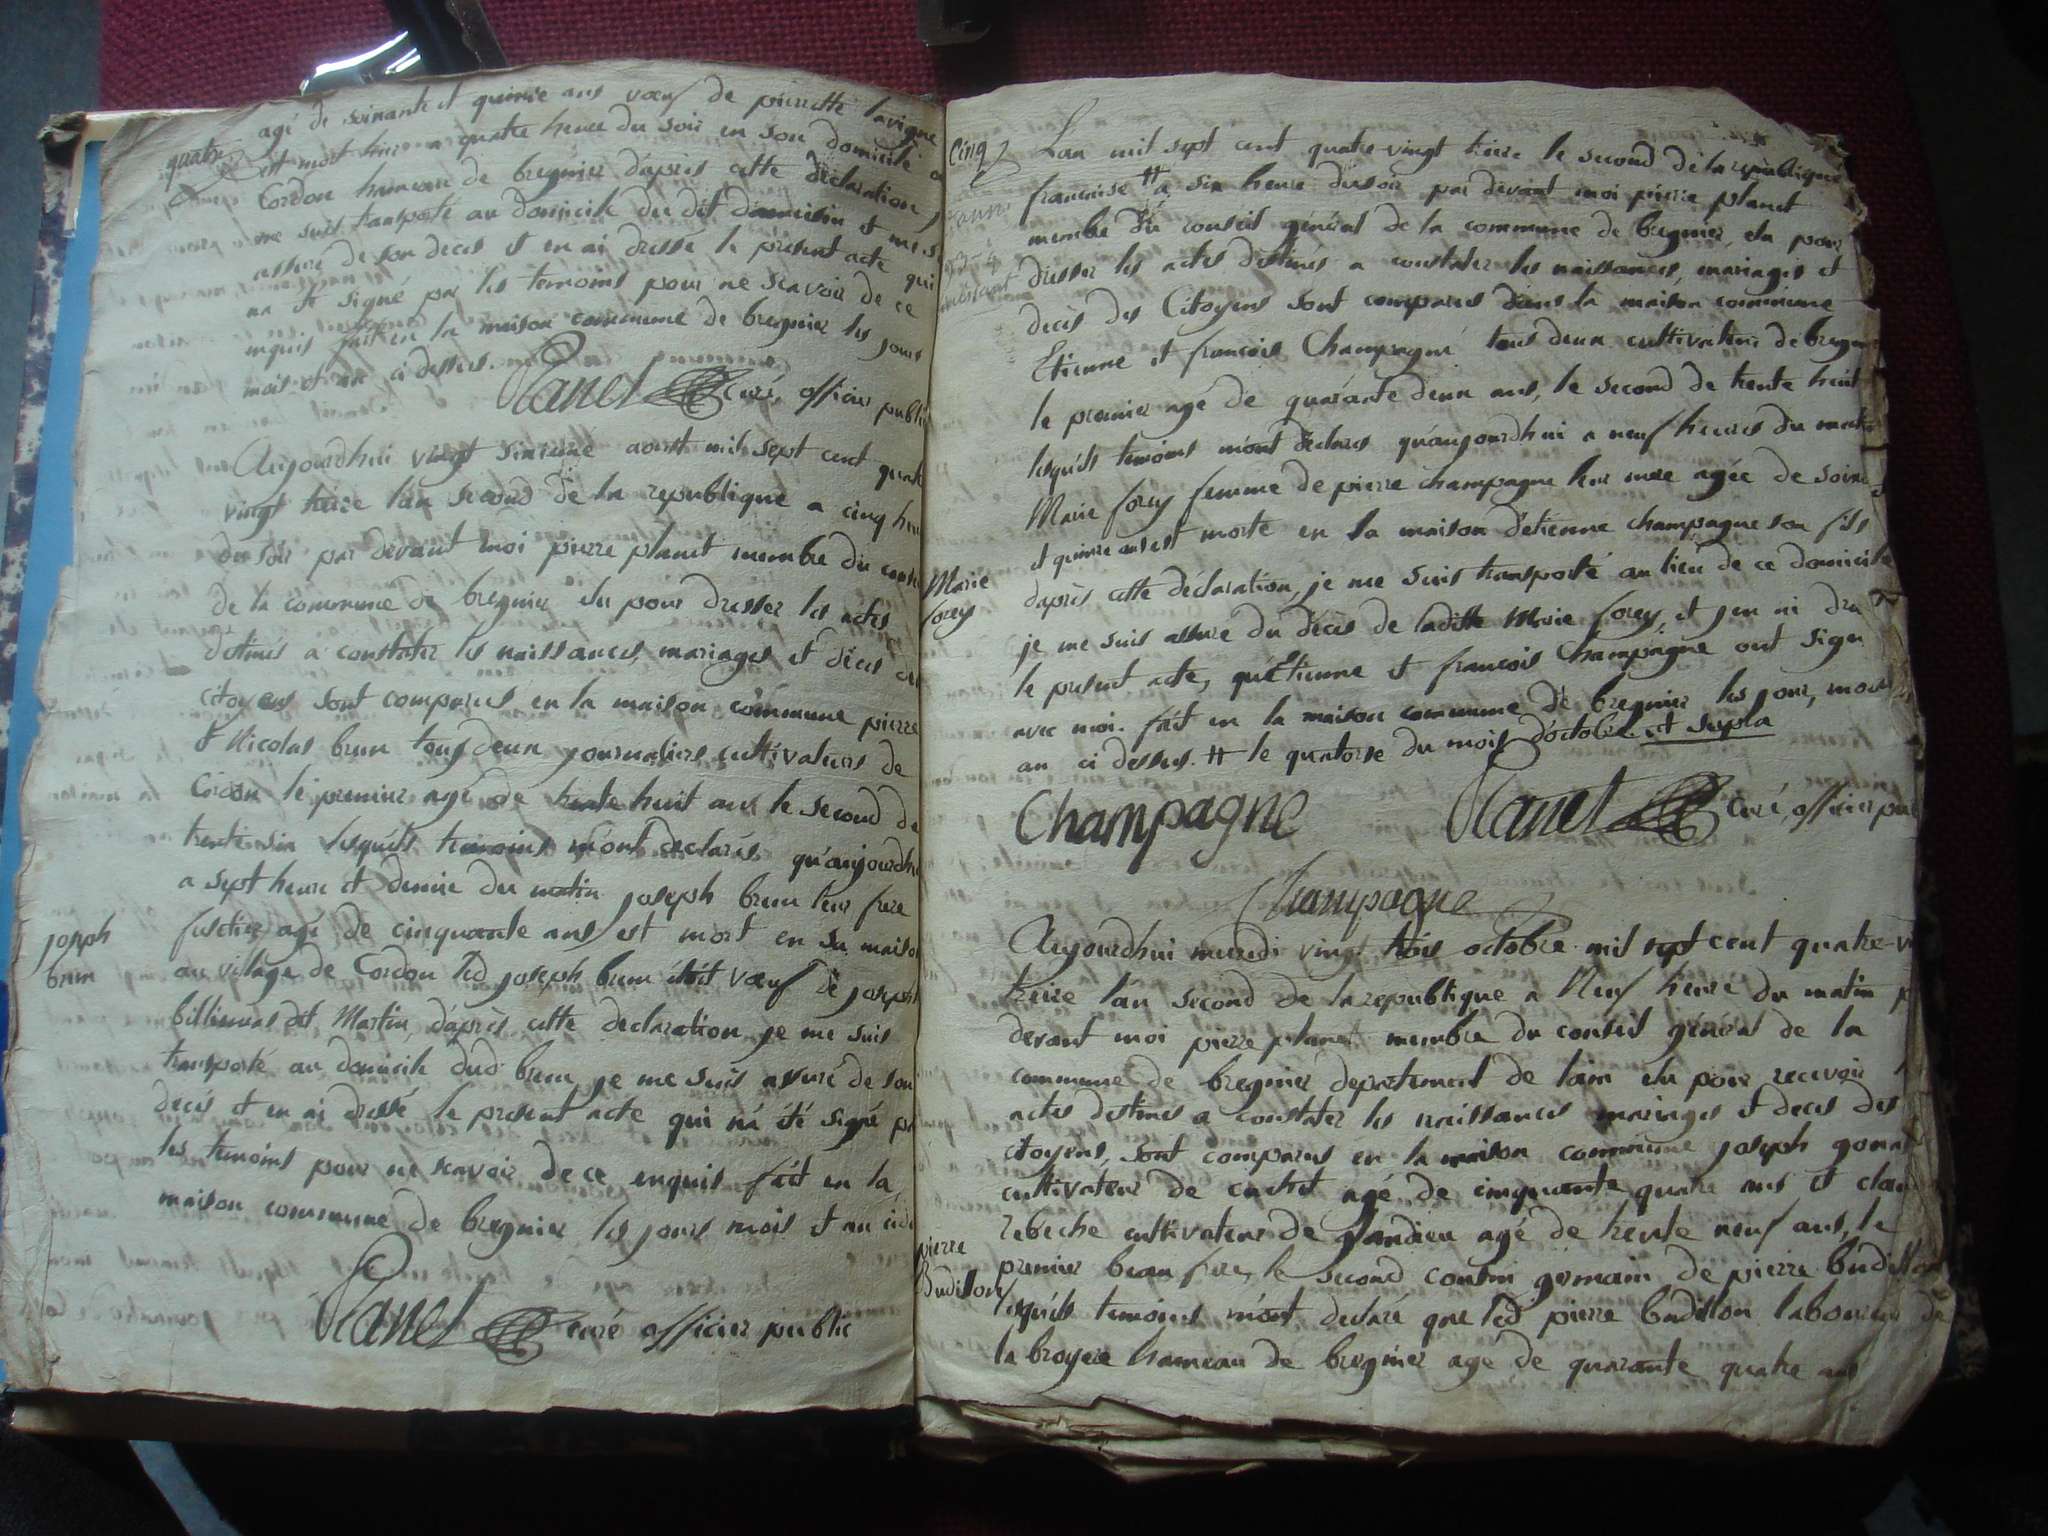 quatre
agé de soixante et quinze ans vœuf de pierrette lavigne
est mort hier a quatre heure du soir en son domicile
Cordon hameau de bregnier d'après cette declaration
me suis transporté au domicile du dit
assuré de son deces et en ai dressé le present acte qui
na été signé par les temoins pour ne scavoir de ce
enquis fait en la maison commune de bregnier les jours
mois et an ci dessus.
Planet curé, officier public
Aujourdhui vingt sixieme aoust mil sept cent quatre
vingt treize l'an second de la republique a cinq heu
du soir par devant moi pierre planet membre du conse
de la commune de bregnier elu pour dresser les actes
destinés a constater les naissances, mariages et deces
citoyens sont comparus en la maison commune pierre
et Nicolas brun tous deux journaliers cultivateurs de
Cordon le premier agé de trente huit ans le second de
trente six lesquels temoins m'ont declarés qu'aujourdhu
a sept heure et demie du matin joseph brun leur frere
joseph
brun
agé de cinquante ans est mort en sa maison
au village de Cordon led joseph brun étoit vœuf de joseph
billiemas dit Martin, d'après cette declaration je me suis
transporté au domicile dud brun, je me suis assuré de son
decés et en ai dressé le present acte qui n'a été signé par
les temoins pour ne scavoir de ce enquis fait en la
maison commune de bregnier les jours mois et an
Planet curé officier public
Cinq
Lan mil sept cent quatre-vingt treize le second de la republique
francaise # a six heure du soir par devant moi pierre planet
membre du conseil général de la commune de bregnier, elu pour
dresser les actes destinés a constater les naissances, mariages et
decès des Citoyens sont comparus dans la maison commune
Etienne et francois Champagne tous deux cultivateurs de bregnier
le premier agé de quarante deux ans, le second de trente huit
lesquels temoins m'ont declarés qu'aujourdhui a neuf heures du matin
Marie forey femme de pierre champagne leur mere agée de soixante
et quinze ans est morte en la maison d'etienne champagne son fils
Marie
forey
daprès cette déclaration, je me suis transporté au lieu de ce domicile
je me suis assure du décès de laditte Marie forey, et j'en ai dre
le present acte, qu'Etienne et francois Champagne ont sign
avec moi. fait en la maison commune de bregnier les jour, mois
an ci dessus. # le quatorse du mois d'octobre
Champagne Planet curé, officier pub
Champagne
Aujourdhui mercredi vingt trois octobre mil sept cent quatre-v
treize l'an second de la republique a Neuf heure du matin p
devant moi pierre planet membre du conseil général de la
commune de bregnier departement de lain elu pour recevoir
actes destinés a constater les naissances mariages et deces des
citoyens, sont comparus en la maison commune joseph
cultivateur de cuchet agé de cinquante quatre ans et clau
rebeche cultivateur de glandieu agé de trente neuf ans, le
premier beau frere, le second cousin germain de pierre budillon
pierre
Budillon
lesquels temoins m'ont declaré que led pierre budillon laboureur de
la broyere hameau de bregnier agé de quarante quatre ans